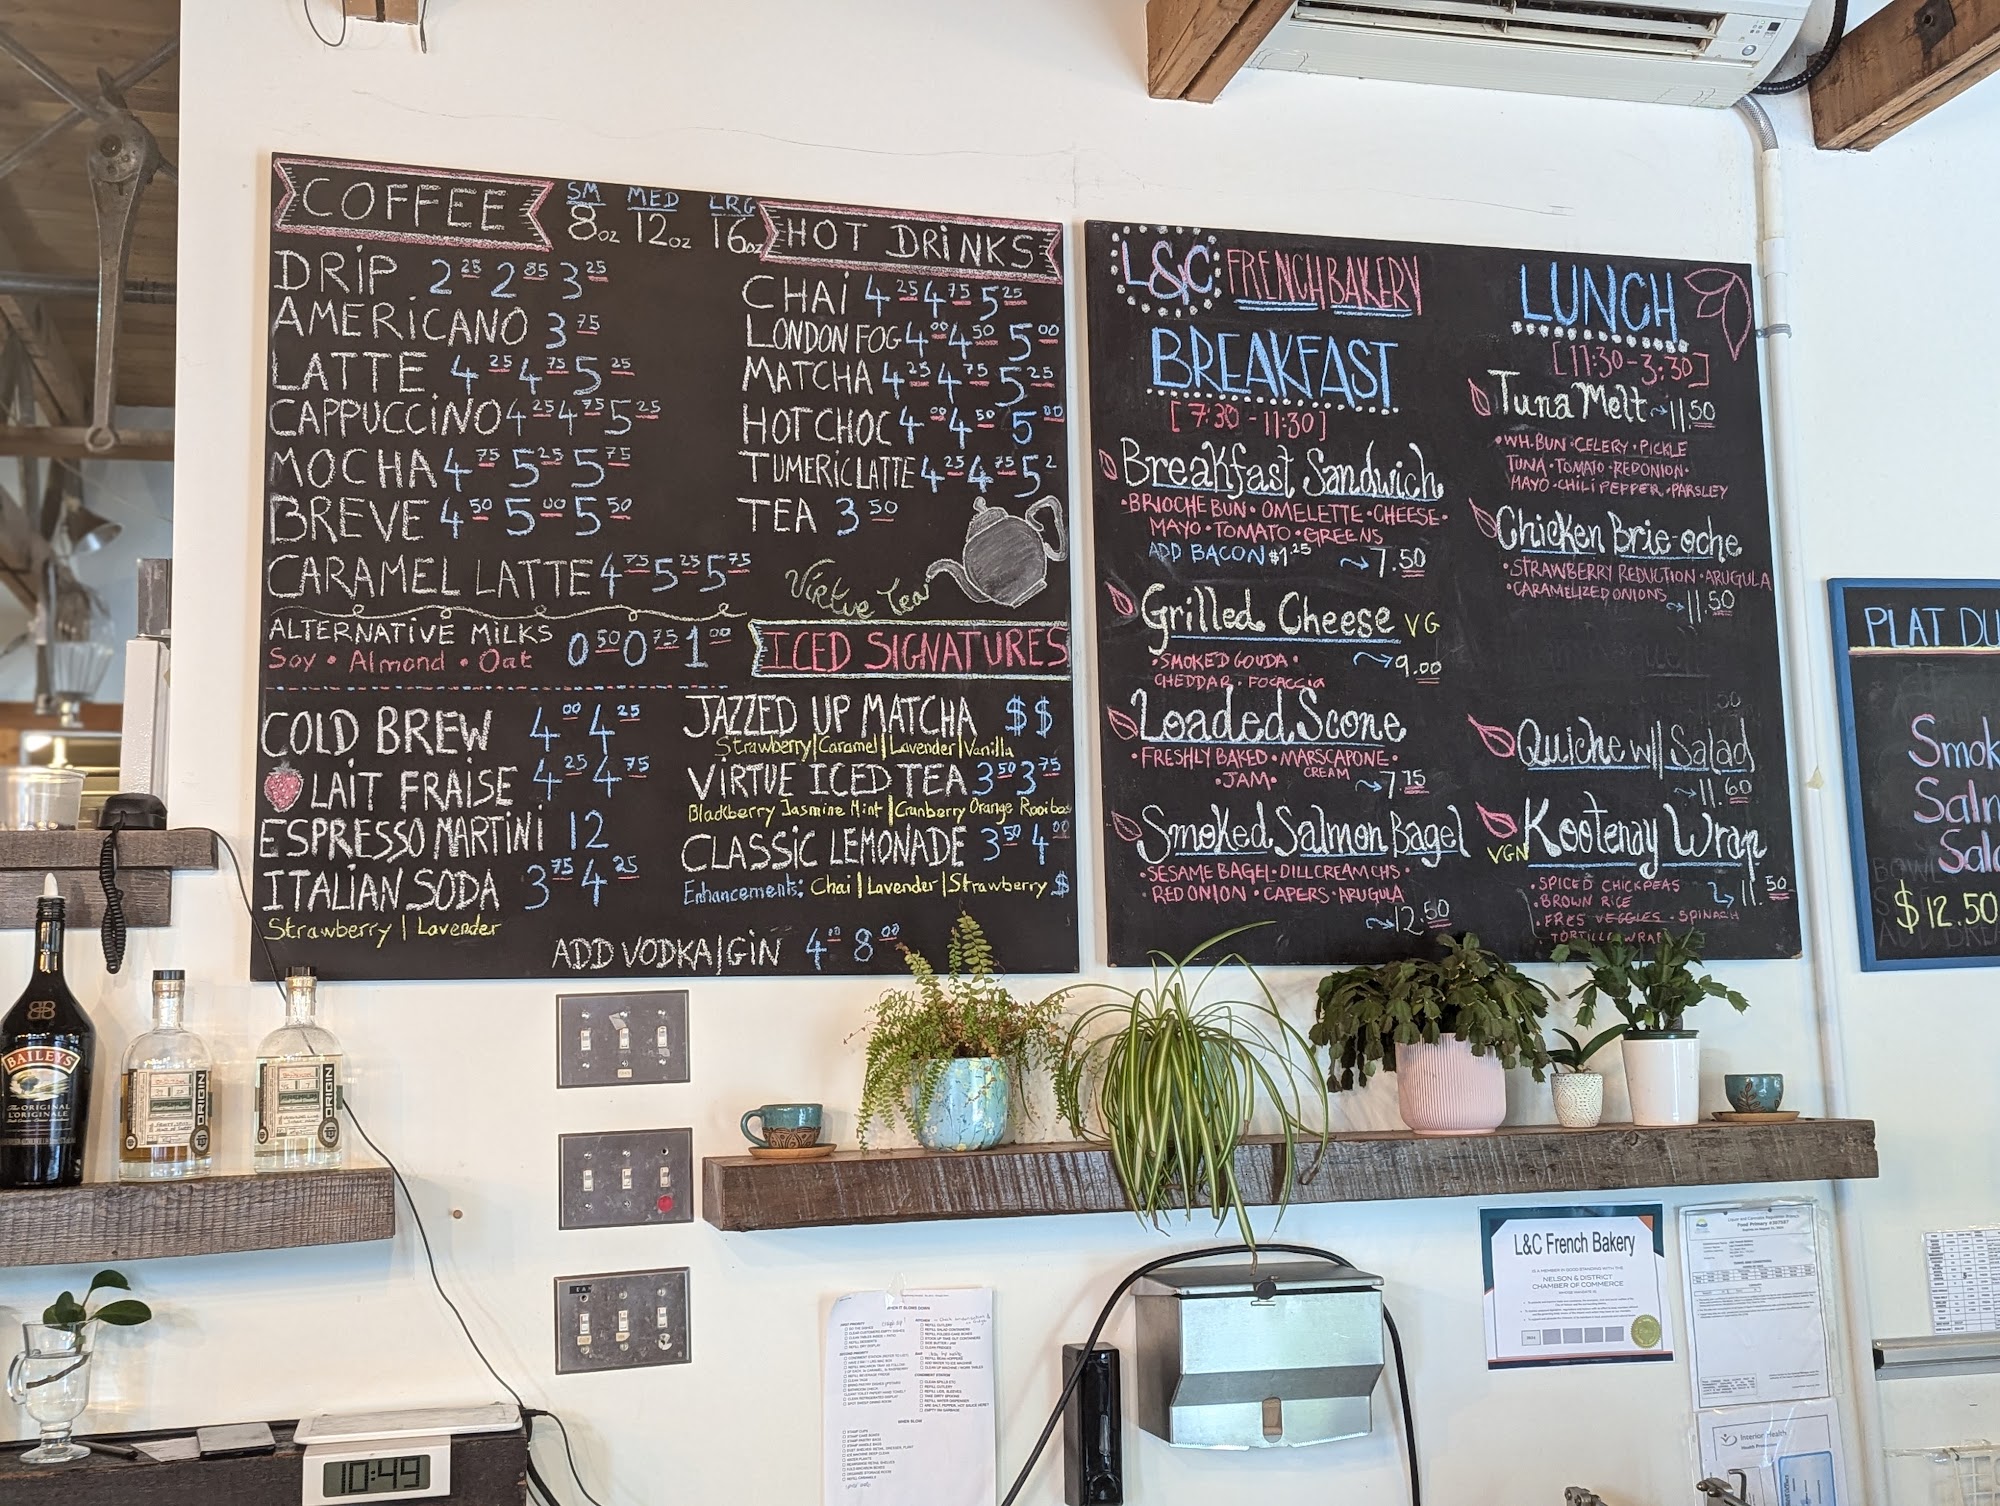 COFFEE
SM MED LRG
8oz 12oz 16oz
DRIP 2 25 2 85 3 25
AMERICANO 3 75
LATTE 4 25 4 75 5 25
CAPPUCCINO 4 25 4 75 5 25
MOCHA 4 75 5 25 5 75
BREVE 4 50 5 00 5 50
CARAMEL LATTE 4 75 5 25 5 75
ALTERNATIVE MILKS 0 50 0 75 1 00
Soy • Almond • Oat
COLD BREW 4 00 4 25
LAIT FRAISE 4 25 4 75
ESPRESSO MARTINI 12
ITALIAN SODA 3 75 4 25
Strawberry | Lavender
HOT DRINKS
CHAI 4 25 4 75 5 25
LONDON FOG 4 00 4 50 5 00
MATCHA 4 25 4 75 5 25
HOT CHOC 4 00 4 50 5 00
TUMERIC LATTE 4 25 4 75 5 2
TEA 3 50
Virtue Tea
ICED SIGNATURES
JAZZED UP MATCHA $$
Strawberry | Caramel | Lavender | Vanilla
VIRTUE ICED TEA 3 50 3 75
Blackberry Jasmine Mint | Cranberry Orange Rooibos
CLASSIC LEMONADE 3 50 4 00
Enhancements: Chai | Lavender | Strawberry $
ADD VODKA|GIN 4 00 8 00
L&C FRENCH BAKERY
BREAKFAST
[7:30-11:30]
Breakfast Sandwich
•BRIOCHE BUN•OMELETTE•CHEESE•
MAYO•TOMATO•GREENS
ADD BACON $1.25 7.50
Grilled Cheese VG
•SMOKED GOUDA• 9.00
CHEDDAR•FOCACCIA
Loaded Scone
•FRESHLY BAKED•MARSCAPONE•
CREAM
•JAM• 7.75
Smoked Salmon Bagel
•SESAME BAGEL•DILL CREAM CHS•
RED ONION•CAPERS•ARUGULA
12.50
LUNCH
[11:30-3:30]
Tuna Melt 11.50
•WH.BUN•CELERY•PICKLE
TUNA•TOMATO•RED ONION•
MAYO•CHILI PEPPER•PARSLEY
Chicken Brie-oche
•STRAWBERRY REDUCTION•ARUGULA
•CARAMELIZED ONIONS 11.50
Quiche w/ Salad
11.60
Kootenay Wrap
VGN
•SPICED CHICKPEAS 11.50
•BROWN RICE
•FRES VEGGIES•SPINACH
TORTILLA WRAP
PLAT DU
Smok
Salm
Sala
$12.50
BAILEYS
THE ORIGINAL
L'ORIGINALE
ORIGIN
ORIGIN
10:49
WHEN IT SLOWS DOWN
L&C French Bakery
IS A MEMBER IN GOOD STANDING WITH THE
NELSON & DISTRICT
CHAMBER OF COMMERCE
Interior Health